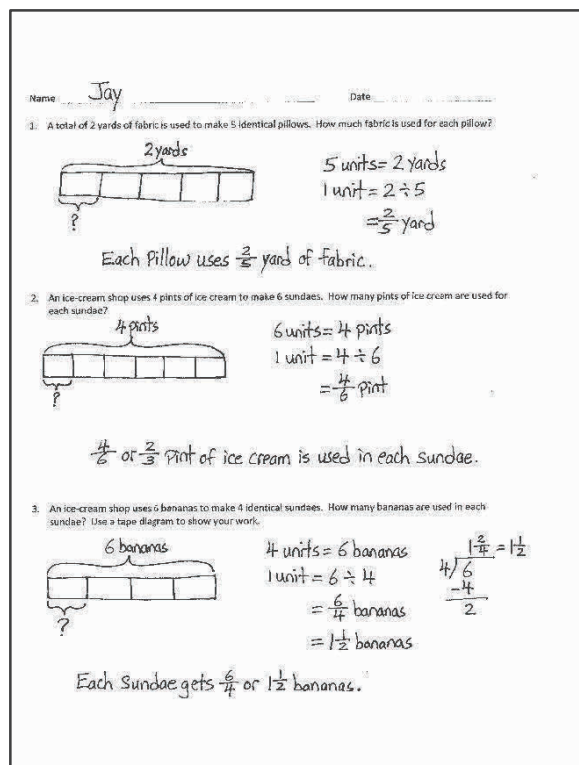 Name Jay Date
1. A total of 2 yards of fabric is used to make 5 identical pillows. How much fabric is used for each pillow?
2 yards
?
5 units = 2 yards
1 unit = 2 ÷ 5
= 2/5 yard
Each Pillow uses 2/5 yard of fabric.
2. An ice-cream shop uses 4 pints of ice cream to make 6 sundaes. How many pints of ice cream are used for
each sundae?
4 pints
?
6 units = 4 pints
1 unit = 4 ÷ 6
= 4/6 pint
4/6 or 2/3 pint of ice cream is used in each sundae.
3. An ice-cream shop uses 6 bananas to make 4 identical sundaes. How many bananas are used in each
sundae? Use a tape diagram to show your work.
6 bananas
?
4 units = 6 bananas
1 unit = 6 ÷ 4
= 6/4 bananas
= 1 1/2 bananas
1 2/4 = 1 1/2
4/6
-4
2
Each Sundae gets 6/4 or 1 1/2 bananas.